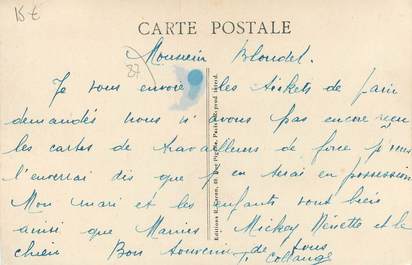 15€
CARTE POSTALE
87
Monsieur Blondel.
Je vous envoie les tickets de pain
demandés nous n'avons pas encore reçu
les cartes de travailleurs de force je vous
l'enverrai dès que j'en serai en possession
Mon mari et les enfants vont bien
ainsi que Mickey Nénette et le
chien Bon souvenir de tous
Collange
Editions R. Caron, Rue Pigalle, Paris